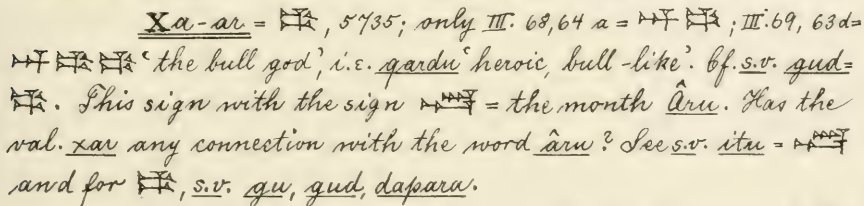 Xa-ar = 𒄞, 5735; only III. 68,64 a = 𒀭 𒄞; III. 69, 63d=
𒀭 𒄞 𒄞 ‘the bull god’, i.e. qardu ‘heroic, bull-like’. Cf. s.v. gud=
𒄞. This sign with the sign 𒌚 = the month Âru. Has the
val. xar any connection with the word âru? See s.v. itu = 𒌚
and for 𒄞, s.v. gu, gud, dapara.